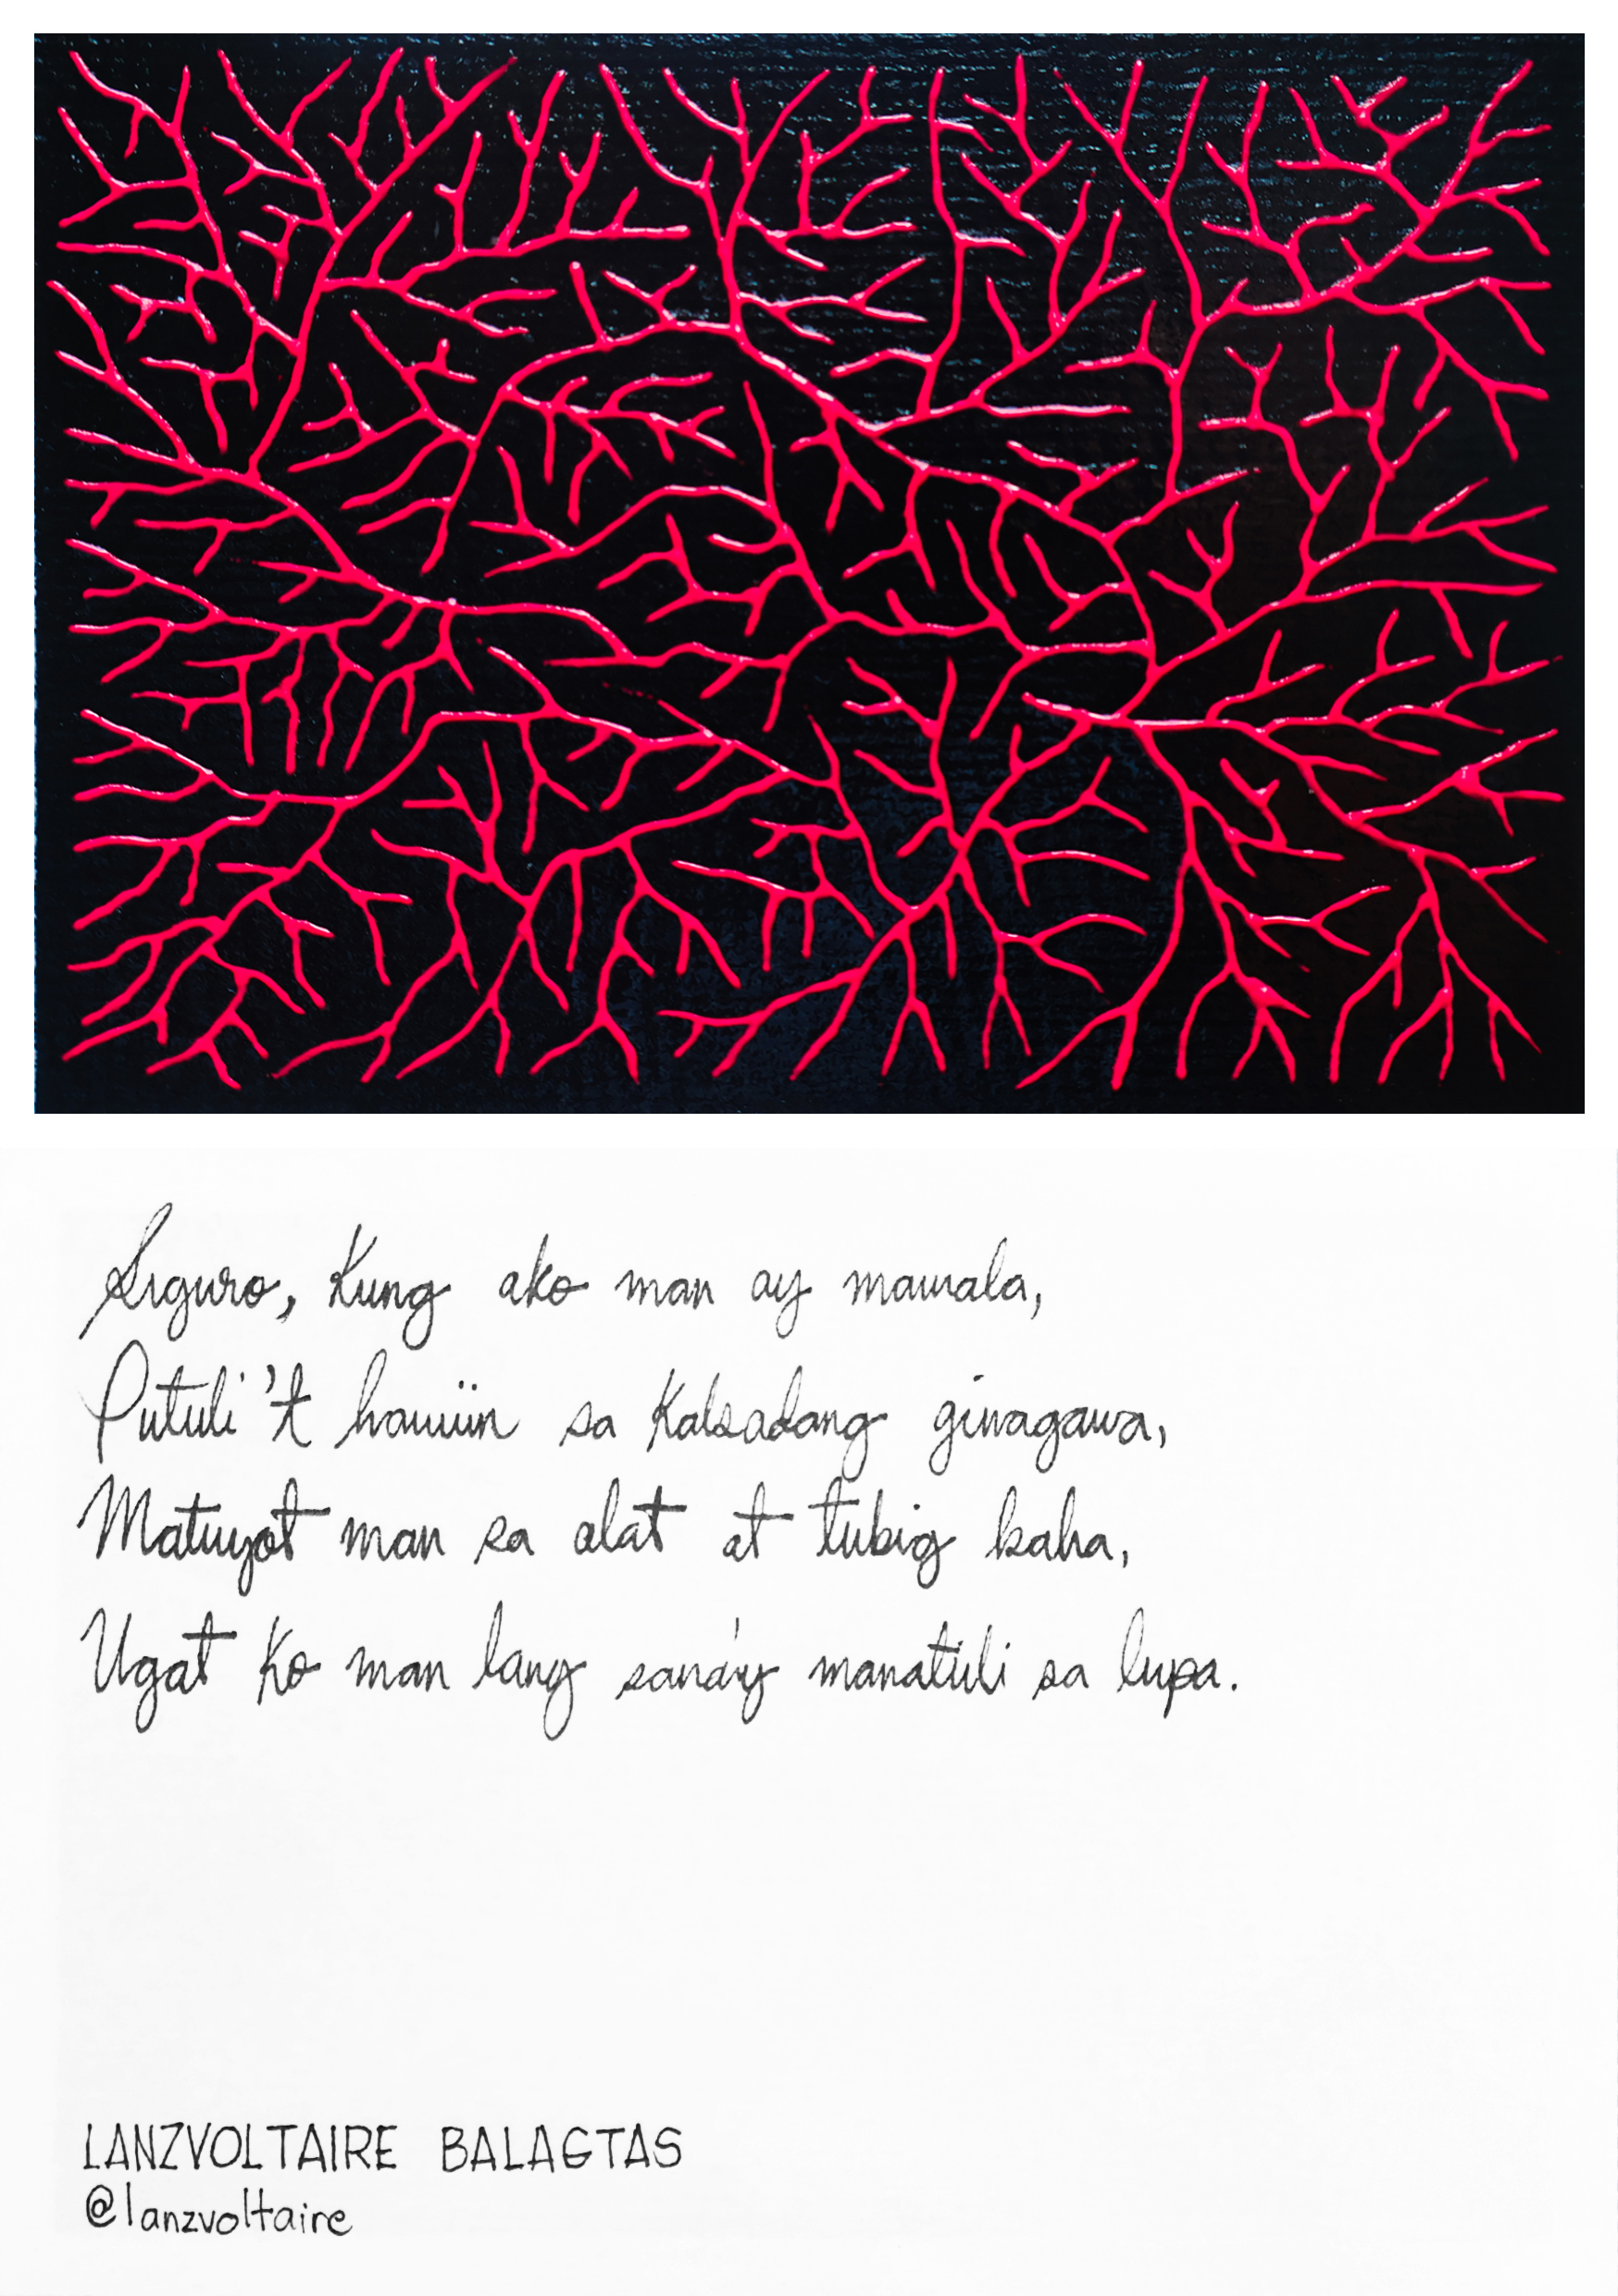 Siguro, Kung ako man ay mawala,
Putuli't hawiin sa Kalsadang ginagawa,
Matuyot man sa alat at tubig baha,
Ugat Ko man lang sana'y manatili sa lupa.
LANZVOLTAIRE BALAGTAS
@lanzvoltaire